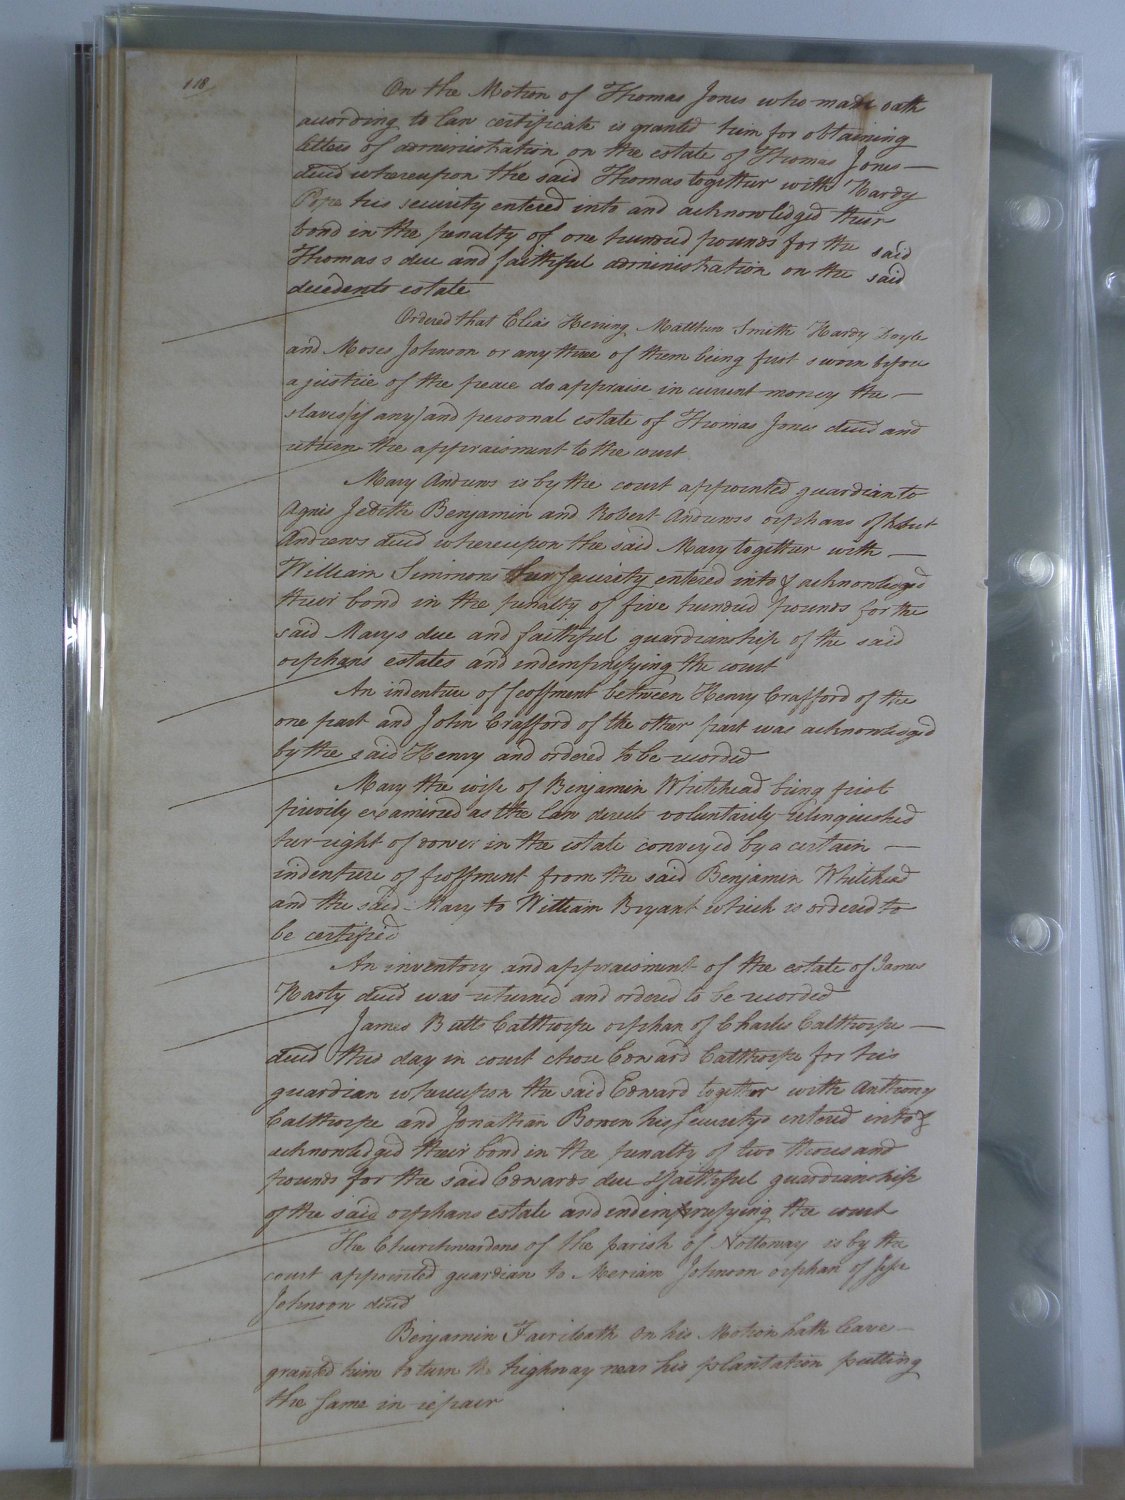 118
On the Motion of Thomas Jones who made oath
according to Law certificate is granted him for obtaining
letters of administration on the estate of Thomas Jones —
decd whereupon the said Thomas together with Hardy
Pope his security entered into and acknowledged their
bond in the penalty of one hundred pounds for the said
Thomas s due and faithful administration on the said
decedents estate
Ordered that Elias Herring Matthew Smith Hardy Doyle
and Moses Johnson or any three of them being first sworn before
a justice of the peace do appraise in current money the —
slaves (if any) and personal estate of Thomas Jones decd and
return the appraisment to the court
Mary Andrews is by the court appointed guardian to
Agnis Jedith Benjamin and Robert Andrewss orphans of Robert
Andrews decd whereupon the said Mary together with —
William Simmons her security entered into & acknowledged
their bond in the penalty of five hundred pounds for the
said Marys due and faithful guardianship of the said
orphans estates and indempnifying the court
An indenture of feoffment between Henry Crafford of the
one part and John Crafford of the other part was acknowledged
by the said Henry and ordered to be recorded
Mary the wife of Benjamin Whitehead being first
privily examined as the Law directs voluntarily relinquished
her right of dower in the estate conveyed by a certain —
indenture of feoffment from the said Benjamin Whitehead
and the said Mary to William Bryant which is ordered to
be certified
An inventory and appraisment of the estate of James
Hasty decd was returned and ordered to be recorded
James Butts Calthorpe orphan of Charles Calthorpe —
decd this day in court chose Edward Calthorpe for his
guardian whereupon the said Edward together with Anthony
Calthorpe and Jonathan Bowen his securitys entered into &
acknowledged their bond in the penalty of two thousand
pounds for the said Edwards due & faithful guardianship
of the said orphans estate and indempnifying the court
The Churchwardens of the parish of Nottoway is by the
court appointed guardian to Meriam Johnson orphan of Jesse
Johnson decd
Benjamin Faircloath on his Motion hath leave —
granted him to turn the highway near his plantation putting
the same in repair